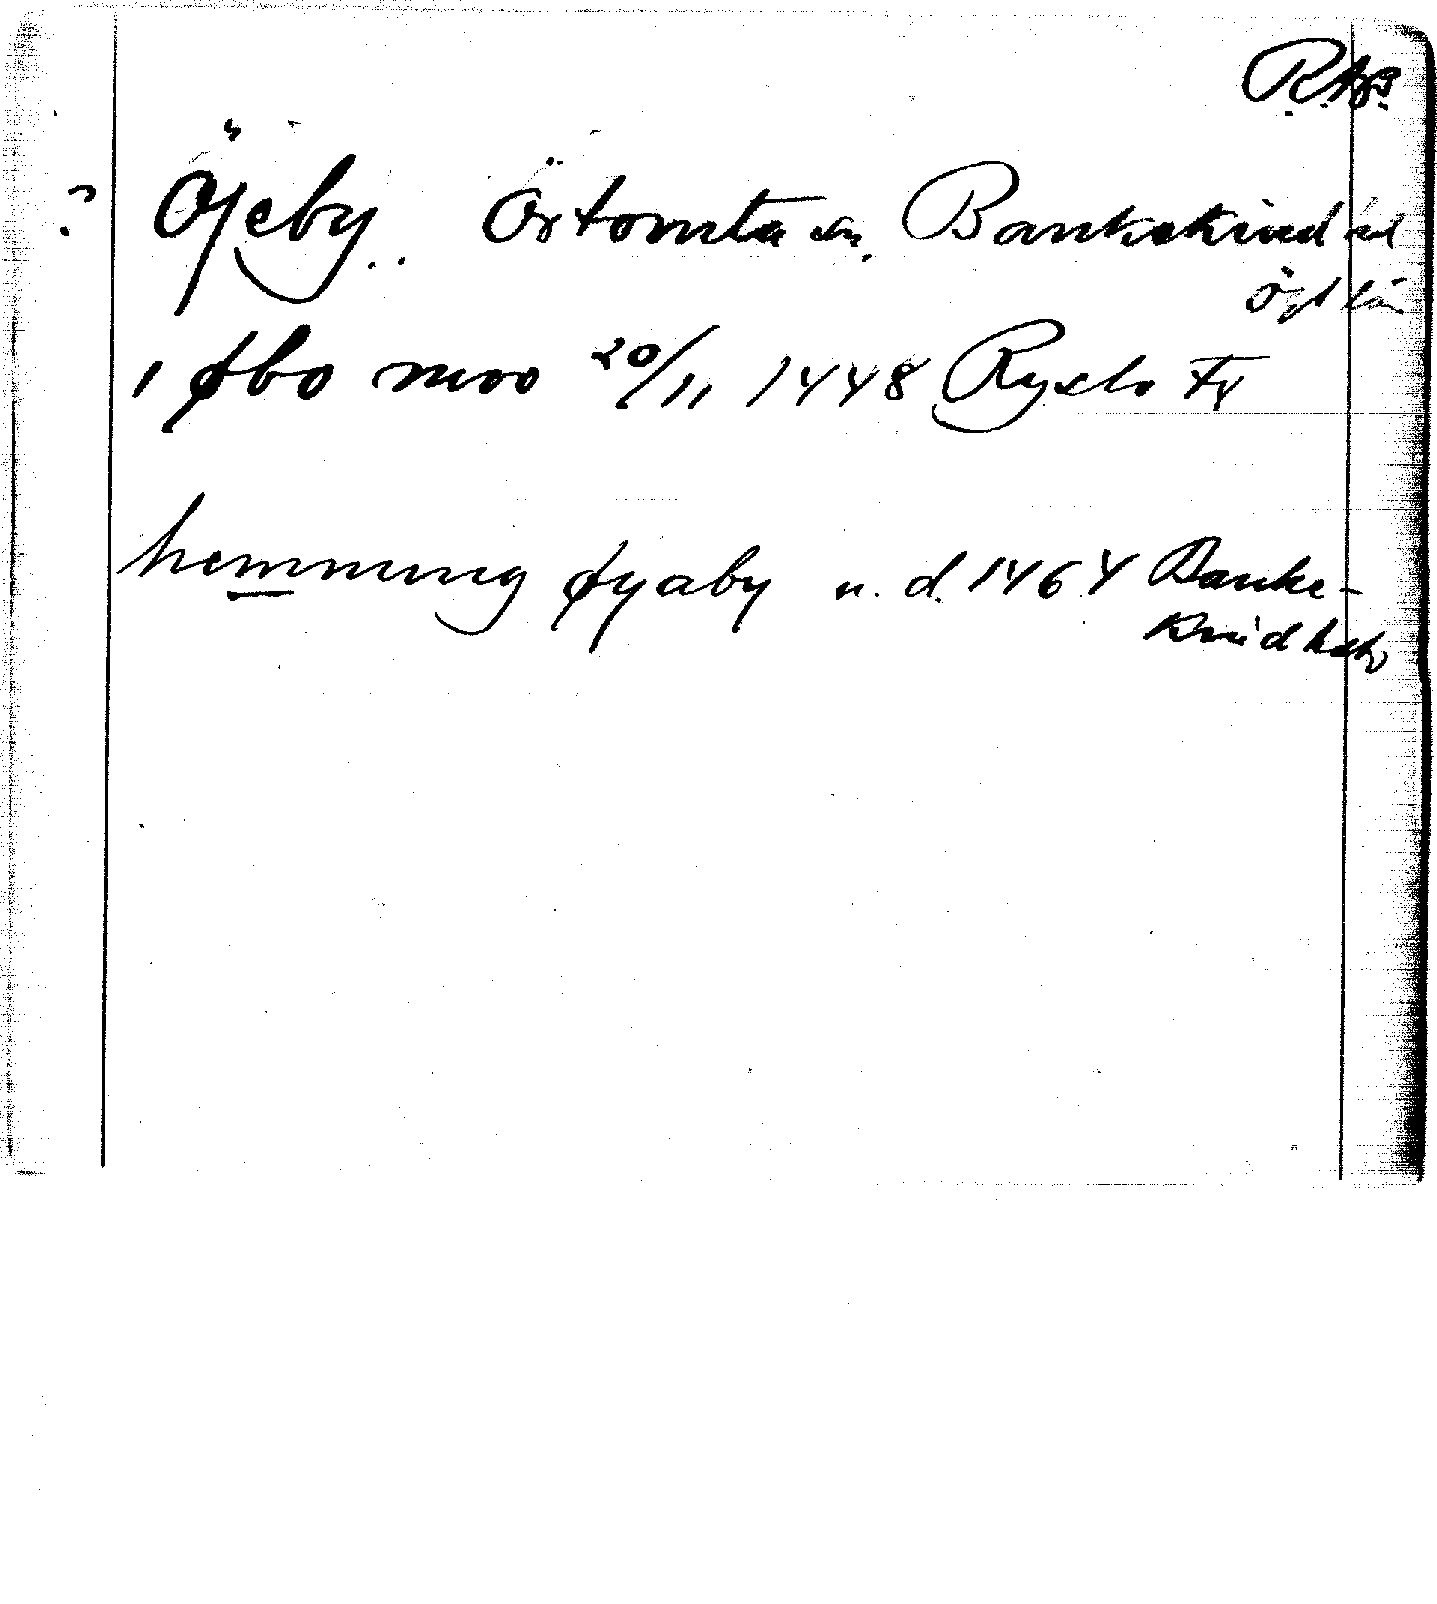 RAp
? Öjeby.. Örtomta sn, Bankekind hd
Ögl län
i øbo moo 20/11 1448 Ryxlo Fr
hemmung øyaby u. d. 1464 Banke-
Kind hd